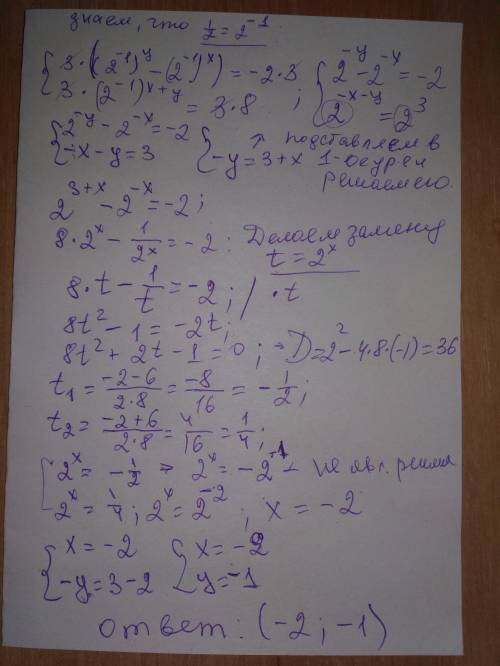 знаем, что 1/2 = 2^-1
{ 3·((2^-1)^y - (2^-1)^x) = -2·3 { 2^-y - 2^-x = -2
3·(2^-1)^x+y = 3·8 ; 2^-x-y = 2^3
{ 2^-y - 2^-x = -2 { ↗ подставляем в
-x - y = 3 -y = 3+x 1-ое урен
решаем его.
2^3+x - 2^-x = -2;
8·2^x - 1/2^x = -2: Делаем замену
t = 2^x
8·t - 1/t = -2; / ·t
8t² - 1 = -2t;
8t² + 2t - 1 = 0; → D = 2² - 4·8·(-1) = 36
t1 = -2-6/2·8 = -8/16 = -1/2;
t2 = -2+6/2·8 = 4/16 = 1/4;
{ 2^x = -1/2 => 2^x = -2^-1 - не явл. реше
2^x = 1/4; 2^x = 2^-2; x = -2
{ x = -2 { x = -2
-y = 3-2 y = -1
ответ: (-2; -1)